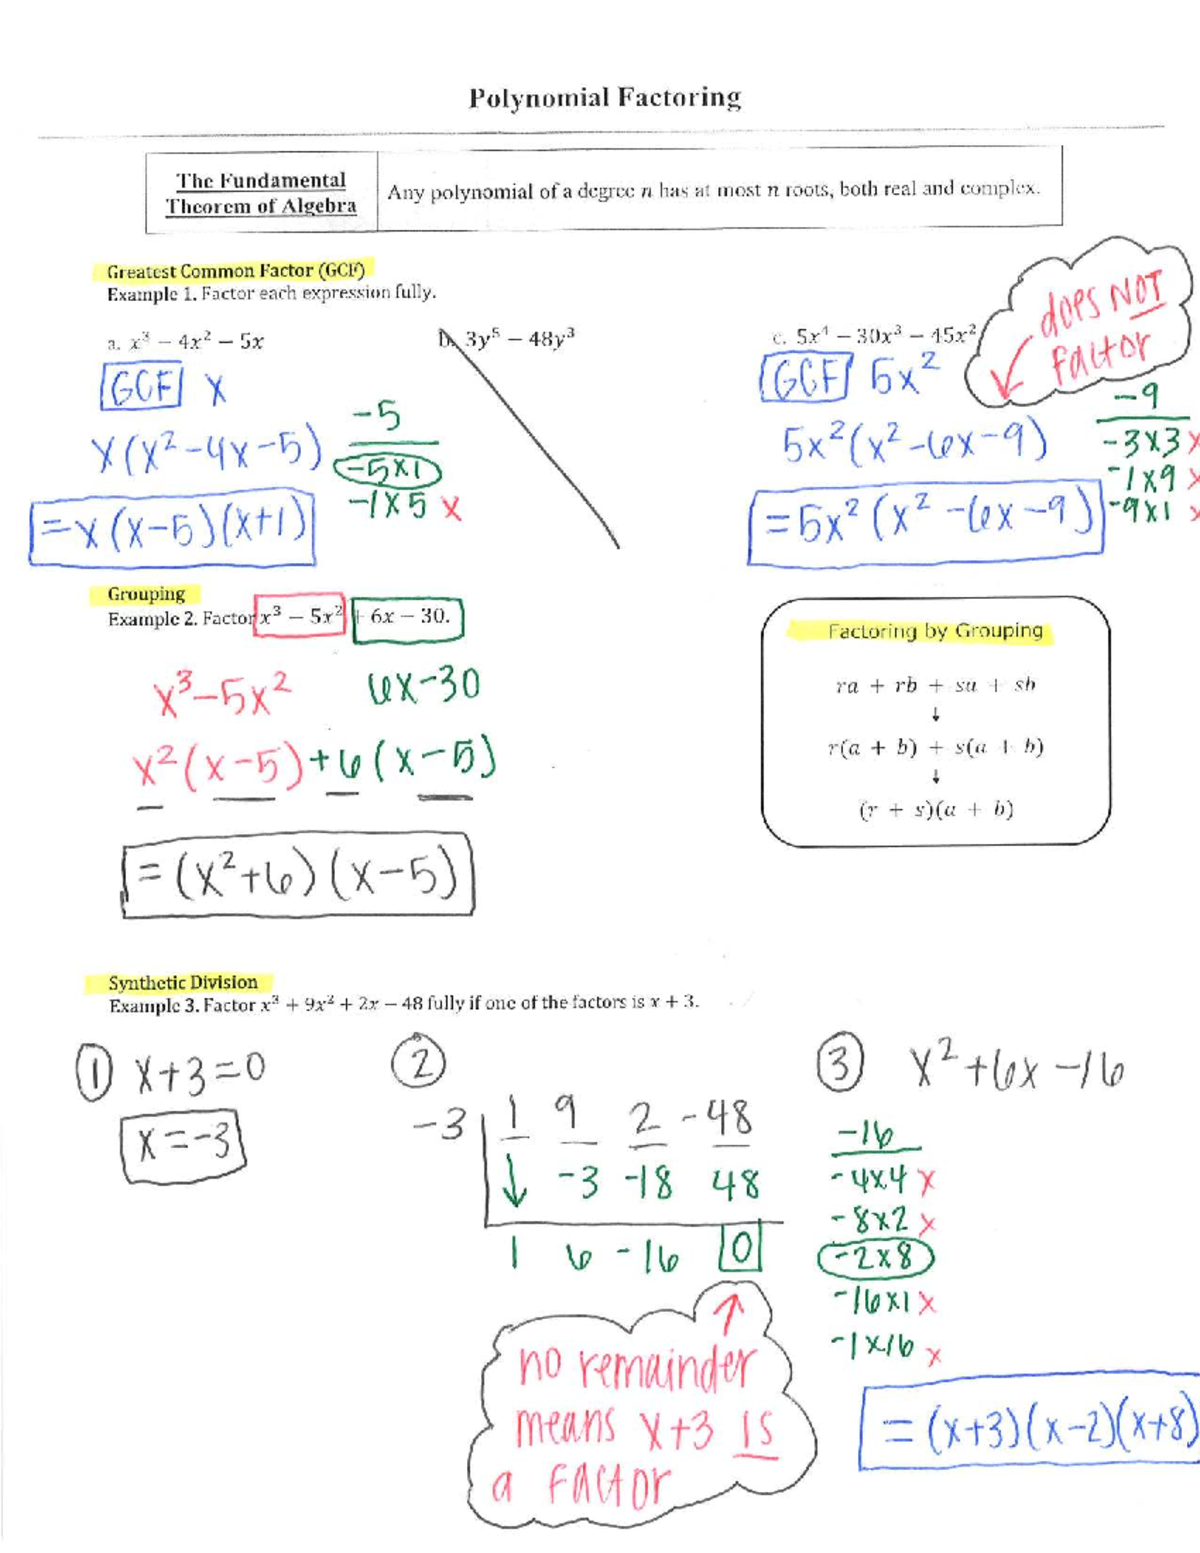 Polynomial Factoring
The Fundamental
Theorem of Algebra
Any polynomial of a degree n has at most n roots, both real and complex.
Greatest Common Factor (GCF)
Example 1. Factor each expression fully.
a. x³ − 4x² − 5x
b. 3y⁵ − 48y³
c. 5x⁴ − 30x³ − 45x²
does NOT
factor
GCF x
x(x²-4x-5)
=x(x-5)(x+1)
-5
-5x1
-1x5 x
GCF 5x²
5x²(x²-6x-9)
=5x²(x²-6x-9)
-9
-3x3 x
-1x9 x
-9x1 x
Grouping
Example 2. Factor x³ − 5x² + 6x − 30.
x³-5x² 6x-30
x²(x-5)+6(x-5)
=(x²+6)(x-5)
Factoring by Grouping
ra + rb + sa + sb
↓
r(a + b) + s(a + b)
↓
(r + s)(a + b)
Synthetic Division
Example 3. Factor x³ + 9x² + 2x − 48 fully if one of the factors is x + 3.
① x+3=0
x=-3
②
-3 1 9 2 -48
↓ -3 -18 48
1 6 -16 0
no remainder
means x+3 is
a factor
③ x²+6x-16
-16
-4x4 x
-8x2 x
-2x8
-16x1 x
-1x16 x
=(x+3)(x-2)(x+8)